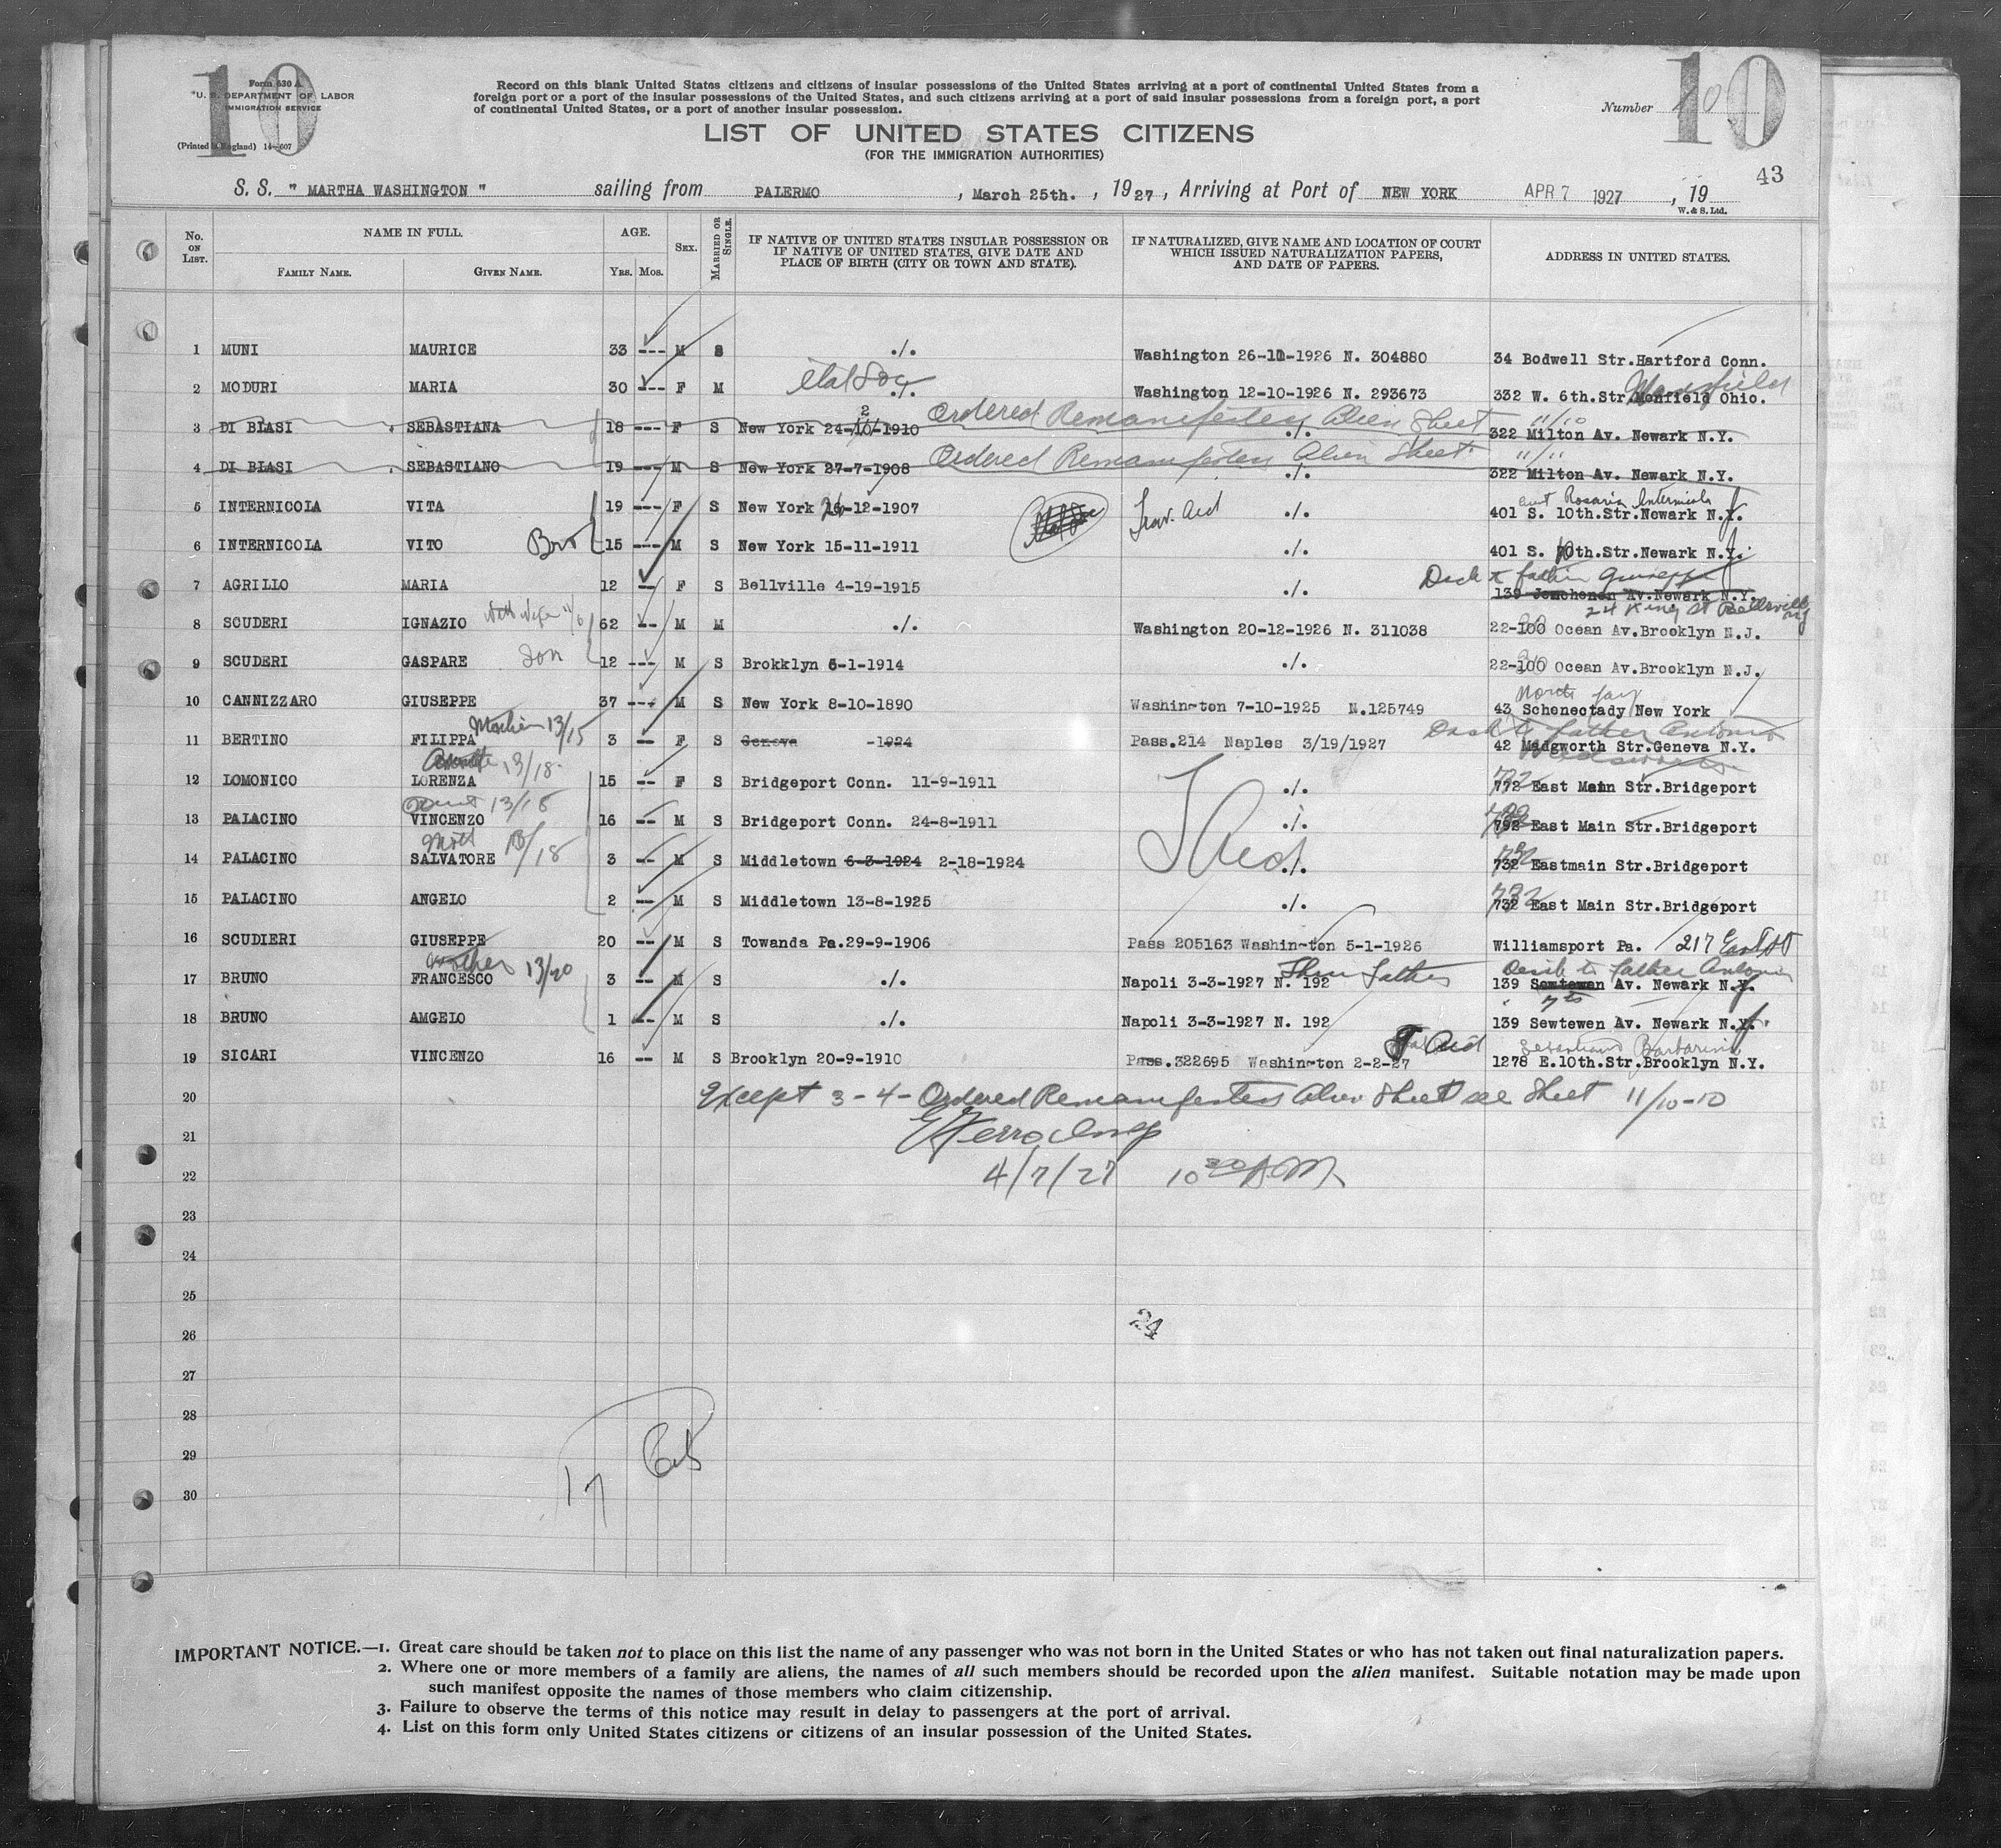 10
Form 630 A
U. S. DEPARTMENT OF LABOR
IMMIGRATION SERVICE
(Printed in England) 14—607
Record on this blank United States citizens and citizens of insular possessions of the United States arriving at a port of continental United States from a
foreign port or a port of the insular possessions of the United States, and such citizens arriving at a port of said insular possessions from a foreign port, a port
of continental United States, or a port of another insular possession.
Number 10
10
LIST OF UNITED STATES CITIZENS
(FOR THE IMMIGRATION AUTHORITIES)
43
S. S. " MARTHA WASHINGTON " sailing from PALERMO , March 25th. , 1927 , Arriving at Port of NEW YORK APR 7 1927 , 19
W. & S. Ltd.
No. ON LIST. NAME IN FULL. AGE. SEX. MARRIED OR SINGLE. IF NATIVE OF UNITED STATES INSULAR POSSESSION OR IF NATIVE OF UNITED STATES, GIVE DATE AND PLACE OF BIRTH (CITY OR TOWN AND STATE). IF NATURALIZED, GIVE NAME AND LOCATION OF COURT WHICH ISSUED NATURALIZATION PAPERS, AND DATE OF PAPERS. ADDRESS IN UNITED STATES.
FAMILY NAME. GIVEN NAME. YRS. MOS.
1 MUNI MAURICE 33 --- M S ./. Washington 26-10-1926 N. 304880 34 Bodwell Str.Hartford Conn.
2 MODURI MARIA 30 --- F M ./. Washington 12-10-1926 N. 293673 332 W. 6th.Str.Monfield Ohio.
Mansfield
Ordered Remanifested Alien Sheet 11/10
3 DI BLASI SEBASTIANA 18 --- F S New York 24-10-1910 ./. 322 Milton Av. Newark N.Y.
Ordered Remanifested Alien Sheet 11/11
4 DI BLASI SEBASTIANO 19 --- M S New York 27-7-1908 ./. 322 Milton Av. Newark N.Y.
aunt Rosaria Internicola
5 INTERNICOLA VITA 19 --- F S New York 16-12-1907 Trav. Aid ./. 401 S. 10th.Str.Newark N.Y.
6 INTERNICOLA VITO Bro 15 --- M S New York 15-11-1911 ./. 401 S. 10th.Str.Newark N.Y.
father Giuseppe
7 AGRILLO MARIA 12 -- F S Bellville 4-19-1915 ./. 139 Av.Newark N.Y.
24 King St Bellsville NJ
8 SCUDERI IGNAZIO 62 -- M M ./. Washington 20-12-1926 N. 311038 22-100 Ocean Av.Brooklyn N.J.
9 SCUDERI GASPARE Son 12 --- M S Brokklyn 6-1-1914 ./. 22-100 Ocean Av.Brooklyn N.J.
10 CANNIZZARO GIUSEPPE 37 --- M S New York 8-10-1890 Washington 7-10-1925 N.125749 43 Schenectady New York
Mother 13/15
father Antonio
11 BERTINO FILIPPA 3 -- F S Geneva -1924 Pass.214 Naples 3/19/1927 42 Madgworth Str.Geneva N.Y.
13/18
12 LOMONICO LORENZA 15 -- F S Bridgeport Conn. 11-9-1911 ./. 772 East Main Str.Bridgeport
Aunt 13/18
13 PALACINO VINCENZO 16 -- M S Bridgeport Conn. 24-8-1911 ./. 792 East Main Str.Bridgeport
Moth 13/18
14 PALACINO SALVATORE 3 -- M S Middletown 6-3-1924 2-18-1924 T Aid ./. 732 Eastmain Str.Bridgeport
15 PALACINO ANGELO 2 -- M S Middletown 13-8-1925 ./. 732 East Main Str.Bridgeport
16 SCUDIERI GIUSEPPE 20 -- M S Towanda Pa.29-9-1906 Pass 205163 Washington 5-1-1926 Williamsport Pa. 217 East St
Mother 13/20
father Antonio
17 BRUNO FRANCESCO 3 -- M S ./. Napoli 3-3-1927 N. 192 Thru father 139 Sewtewen Av. Newark N.Y.
7th
18 BRUNO AMGELO 1 -- M S ./. Napoli 3-3-1927 N. 192 139 Sewtewen Av. Newark N.Y.
T Aid
19 SICARI VINCENZO 16 -- M S Brooklyn 20-9-1910 Pass.322695 Washington 2-2-27 1278 E.10th.Str.Brooklyn N.Y.
20 Except 3-4- Ordered Remanifested Alien Sheet see Sheet 11/10-10
21
22 4/7/27 10 30 A.M.
23
24
25
24
26
27
28
29
17
30
IMPORTANT NOTICE.—1. Great care should be taken not to place on this list the name of any passenger who was not born in the United States or who has not taken out final naturalization papers.
2. Where one or more members of a family are aliens, the names of all such members should be recorded upon the alien manifest. Suitable notation may be made upon
such manifest opposite the names of those members who claim citizenship.
3. Failure to observe the terms of this notice may result in delay to passengers at the port of arrival.
4. List on this form only United States citizens or citizens of an insular possession of the United States.